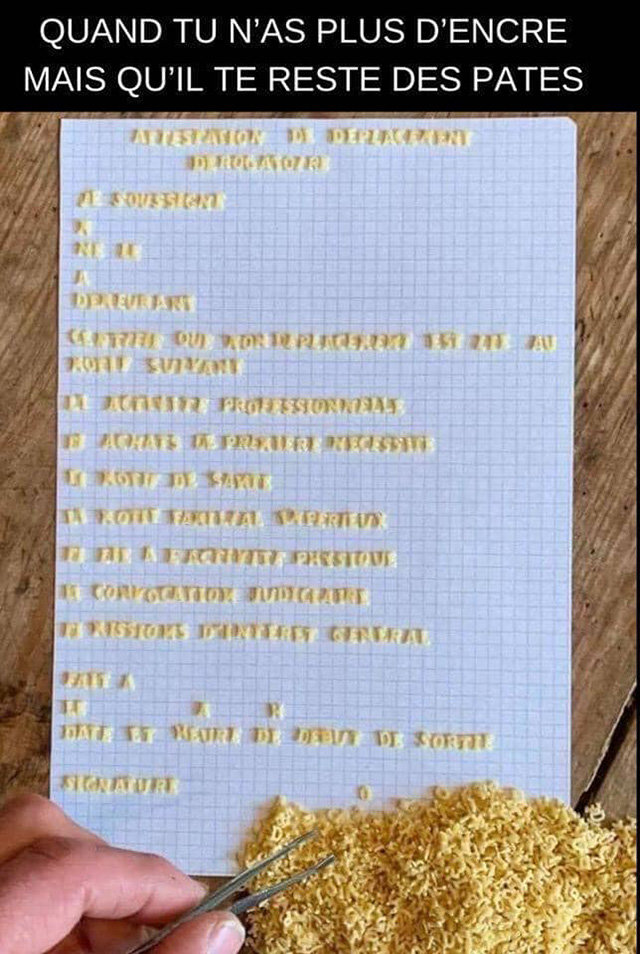 QUAND TU N'AS PLUS D'ENCRE
MAIS QU'IL TE RESTE DES PATES
ATTESTATION DE DEPLACEMENT
DEROGATOIRE
JE SOUSSIGNE
NE LE
A
DEMEURANT
CERTIFIE QUE MON DEPLACEMENT EST LIE AU
MOTIF SUIVANT
ACTIVITE PROFESSIONNELLE
ACHATS DE PREMIERE NECESSITE
MOTIF DE SANTE
MOTIF FAMILIAL IMPERIEUX
LIE A L'ACTIVITE PHYSIQUE
CONVOCATION JUDICIAIRE
MISSIONS D'INTERET GENERAL
FAIT A
LE A H
DATE ET HEURE DE DEBUT DE SORTIE
SIGNATURE